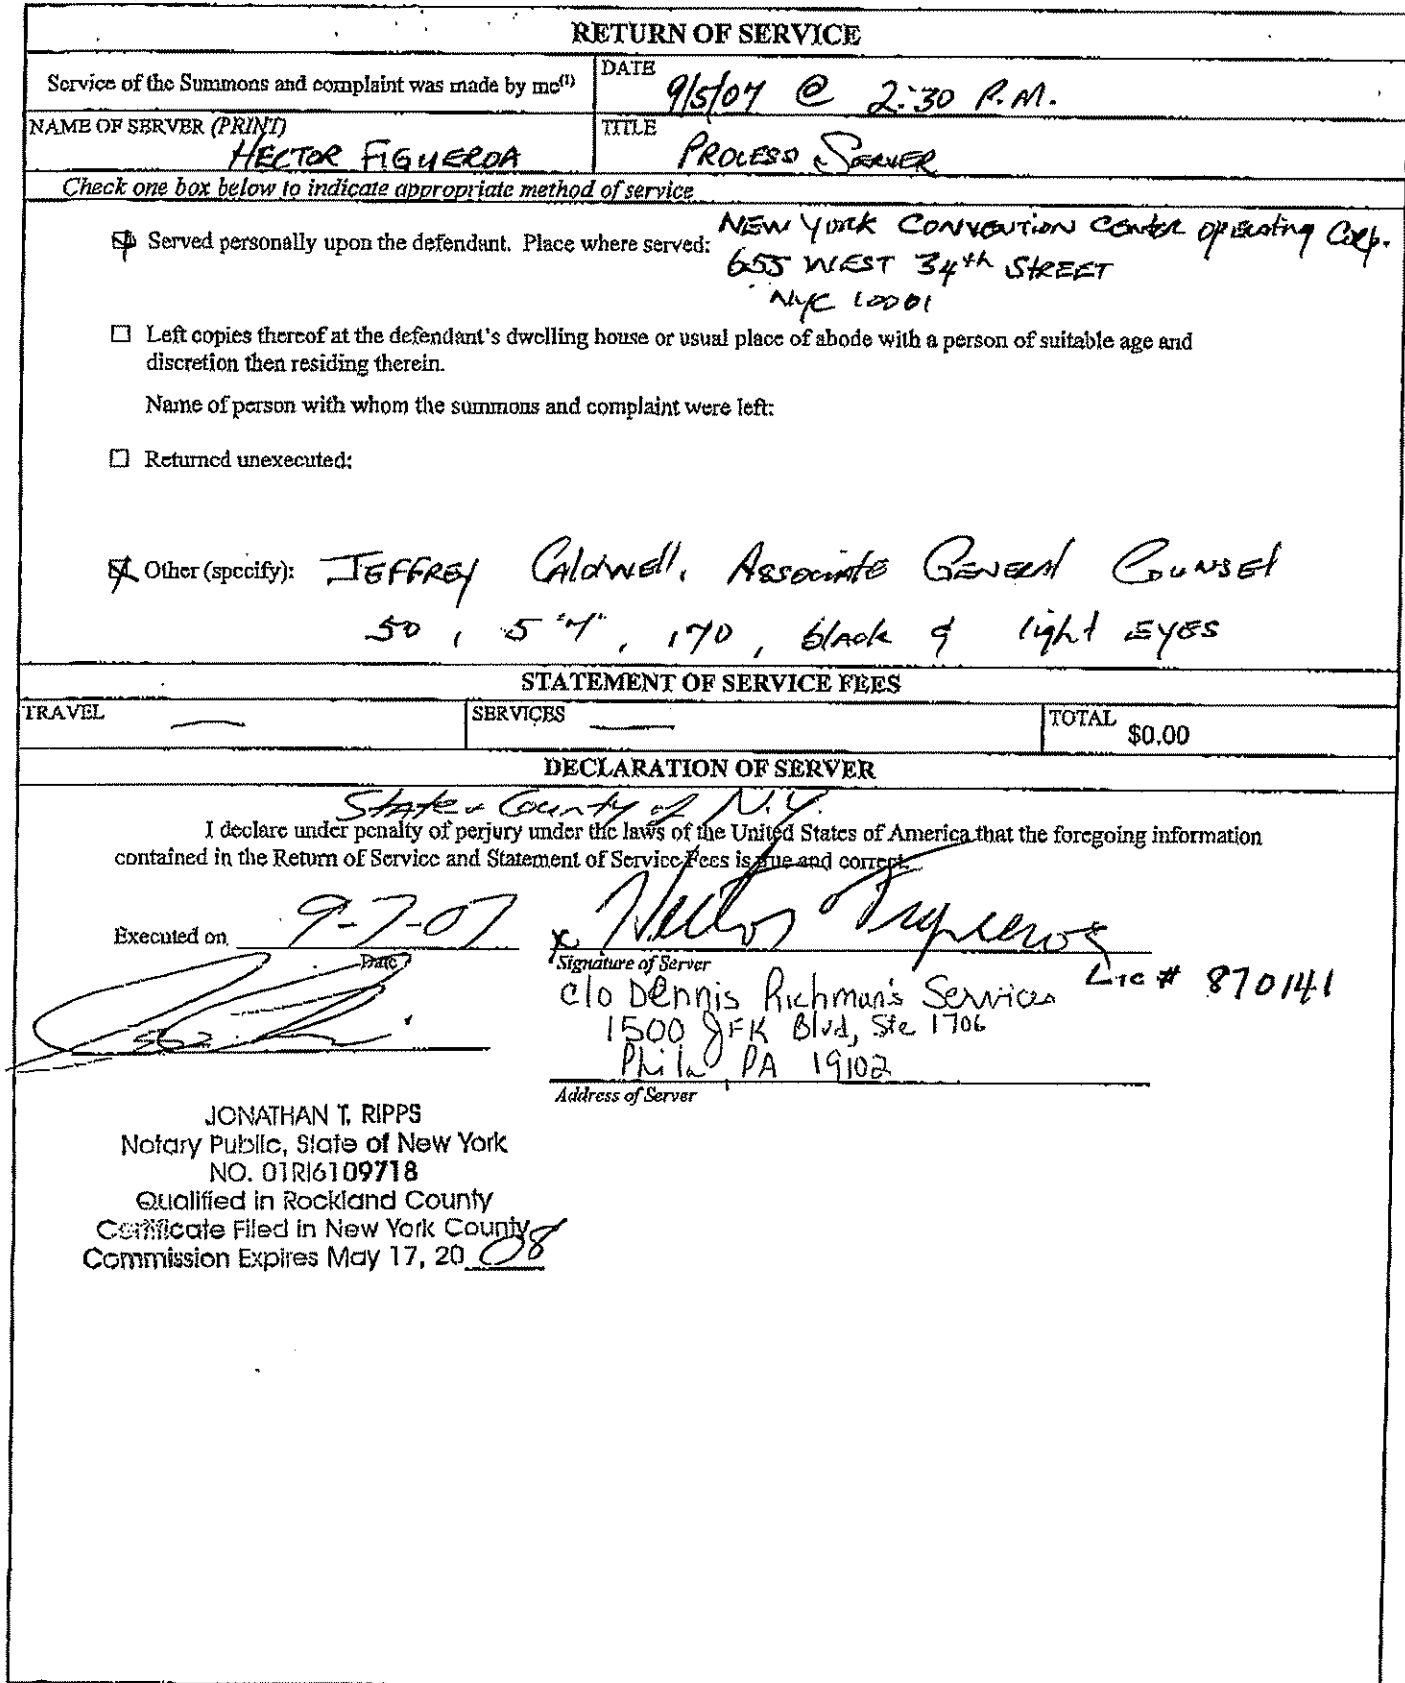 RETURN OF SERVICE
Service of the Summons and complaint was made by me(1)
DATE
9/5/07 @ 2:30 P.M.
NAME OF SERVER (PRINT)
HECTOR FIGUEROA
TITLE
PROCESS SERVER
Check one box below to indicate appropriate method of service
Served personally upon the defendant. Place where served: NEW YORK CONVENTION CENTER OPERATING CORP.
655 WEST 34th STREET
NYC 10001
Left copies thereof at the defendant's dwelling house or usual place of abode with a person of suitable age and
discretion then residing therein.
Name of person with whom the summons and complaint were left:
Returned unexecuted:
Other (specify): JEFFREY CALDWELL, ASSOCIATE GENERAL COUNSEL
50, 5'7", 170, black & light EYES
STATEMENT OF SERVICE FEES
TRAVEL —
SERVICES —
TOTAL
$0.00
DECLARATION OF SERVER
State & County of N.Y.
I declare under penalty of perjury under the laws of the United States of America that the foregoing information
contained in the Return of Service and Statement of Service Fees is true and correct.
Executed on 9-7-07
x Hector Figueroa
Date
Signature of Server
Lic # 870141
c/o Dennis Richman's Services
1500 JFK Blvd, Ste 1706
Phila PA 19102
Address of Server
JONATHAN T. RIPPS
Notary Public, State of New York
NO. 01RI6109718
Qualified in Rockland County
Certificate Filed in New York County
Commission Expires May 17, 20 08